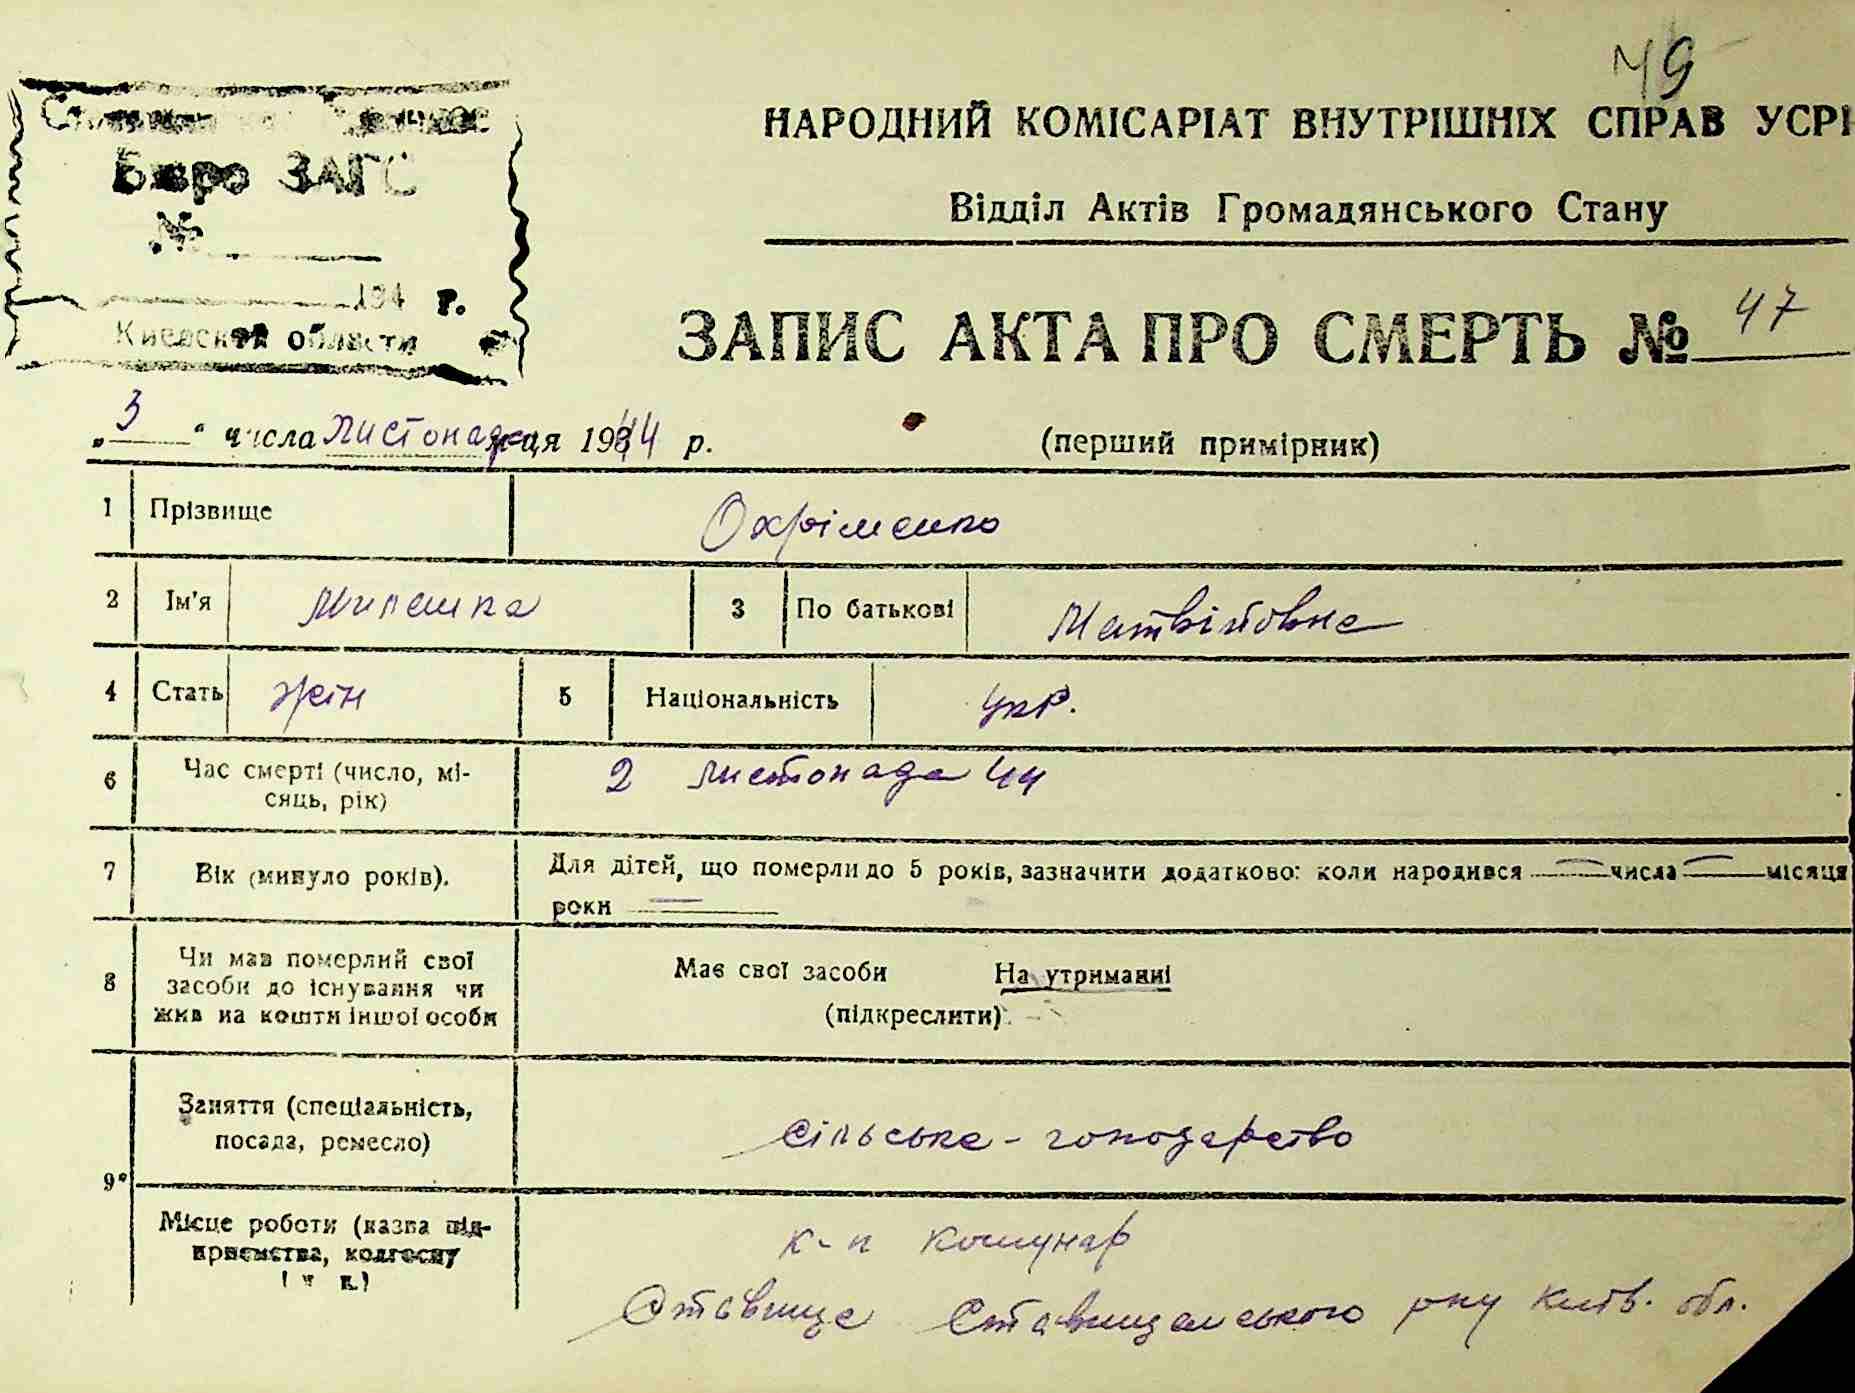 49
НАРОДНИЙ КОМІСАРІАТ ВНУТРІШНІХ СПРАВ УСРР
Відділ Актів Громадянського Стану
Бюро ЗАГС
№
194 г.
Киевской области
ЗАПИС АКТА ПРО СМЕРТЬ № 47
„3“ числа листопада м-ця 1944 р. (перший примірник)
1 Прізвище Охріменко
2 Ім'я 3 По батькові Матвіївна
4 Стать жін 5 Національність укр.
6 Час смерті (число, мі-
сяць, рік) 2 листопада 44
7 Вік (минуло років). Для дітей, що померли до 5 років, зазначити додатково: коли народився — числа — місяця
роки —
8 Чи мав померлий свої
засоби до існування чи
жив на кошти іншої особи
Має свої засоби На утриманні
(підкреслити)
9 Заняття (спеціальність,
посада, ремесло) сільське-господарство
Місце роботи (назва під-
приємства, колгоспу
і т. п.)
к-п комунар
Ставище Ставищанського р-ну Київ. обл.